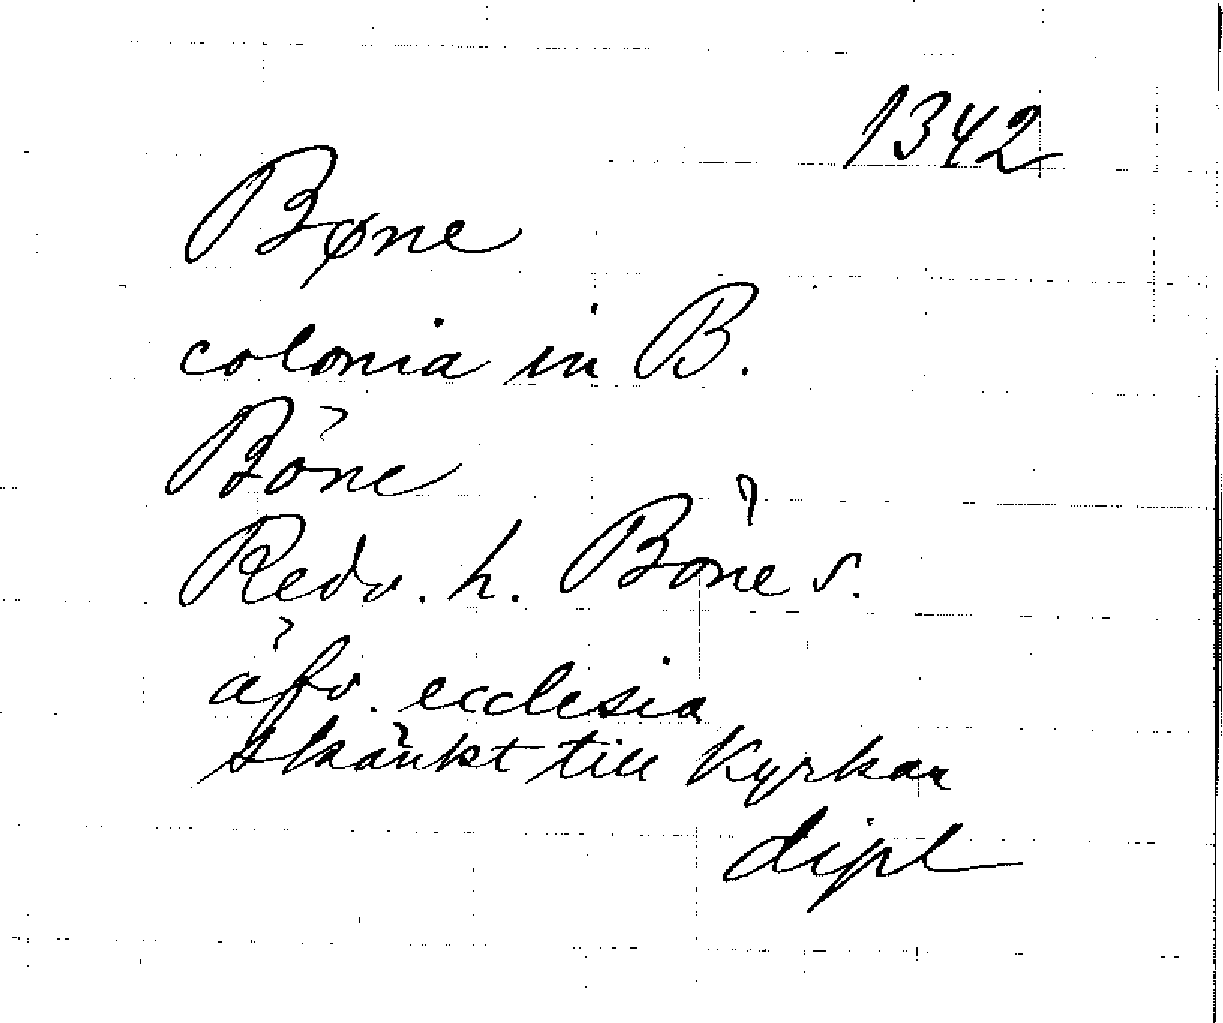 1342
Bøne
colonia in B.
Böne
Redv. h. Böne s.
äfv. ecclesia
skänkt till Kyrkan
dipl